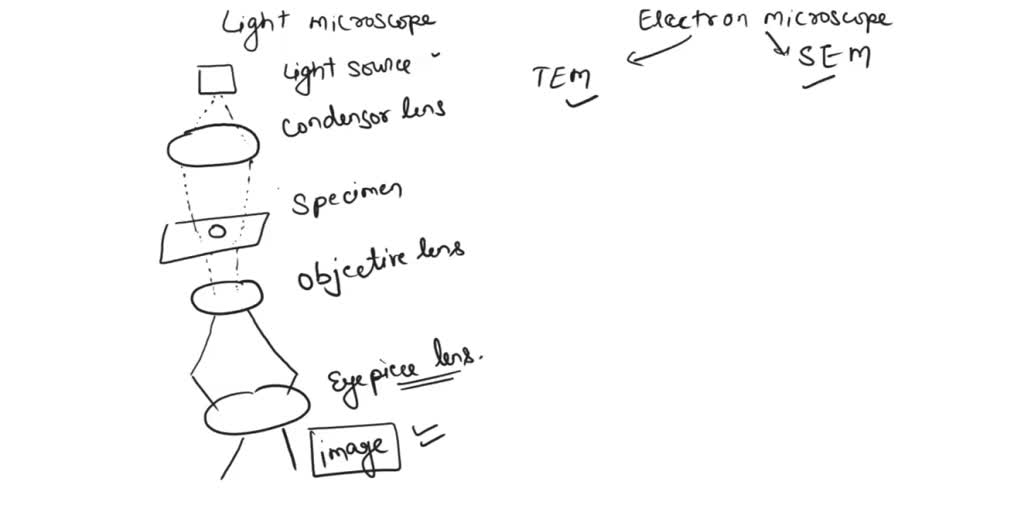 Light microscope
Light source
Condensor lens
Specimen
Objective lens
Eyepiece lens.
image
Electron microscope
TEM
SEM